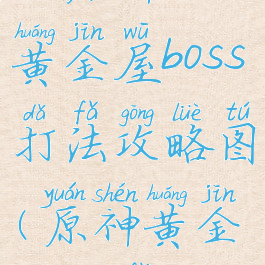 huáng jīn wū
黄金屋boss
dǎ fǎ gōng lüè tú
打法攻略图
yuán shén huáng jīn
(原神黄金